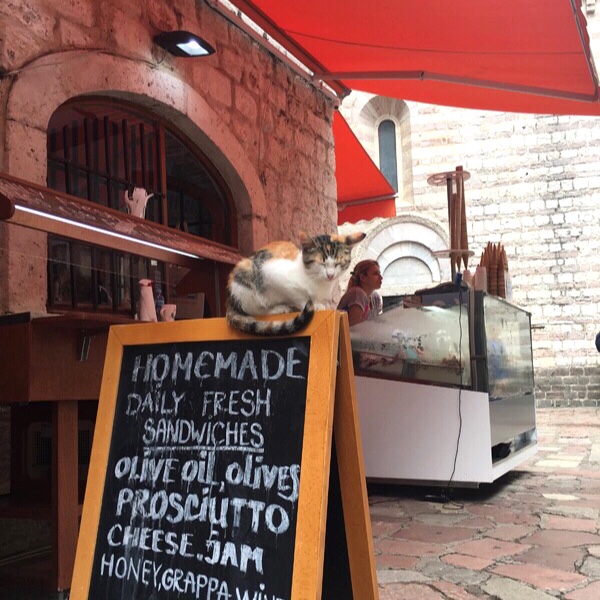 HOMEMADE
DAILY FRESH
SANDWICHES
OLIVE OIL, OLIVES
PROSCIUTTO
CHEESE. JAM
HONEY, GRAPPA, WINE